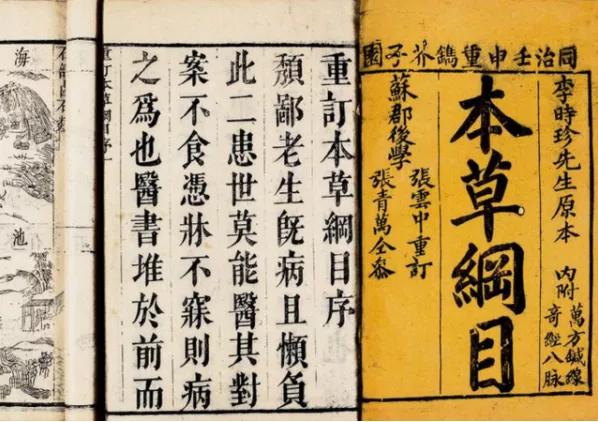 同治壬申重鐫芥子園
李時珍先生原本
內附
萬方鍼線
奇經八脉
本草綱目
張雲中重訂
蘇郡後學
張青萬仝參
重訂本草綱目序
頮鄙老生既病且懶負
此二患世莫能醫其對
案不食憑牀不寐則病
之為也醫書堆於前而
重訂本草綱目序
海
池